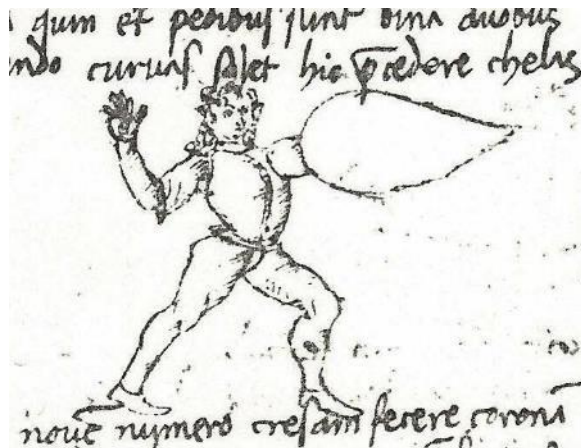 quin et pedibuſ ſunt bina duobus
ndo curuaſ ſolet hic p̄cedere chelas
nouē numero creſam fecere coronā